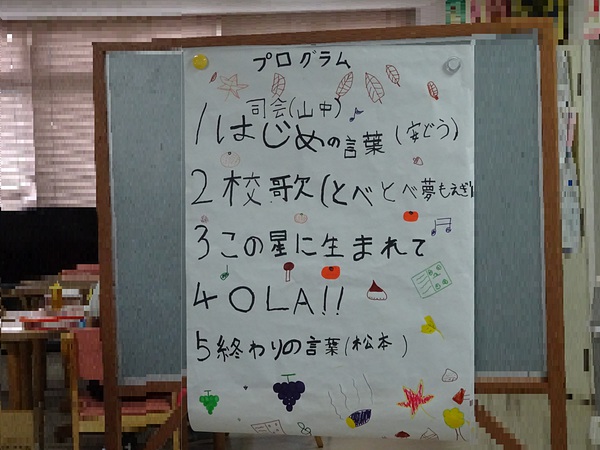 プログラム
司会(山中)
1はじめの言葉(安どう)
2校歌(とべとべ夢もえぎ)
3この星に生まれて
4 OLA!!
5終わりの言葉(松本)